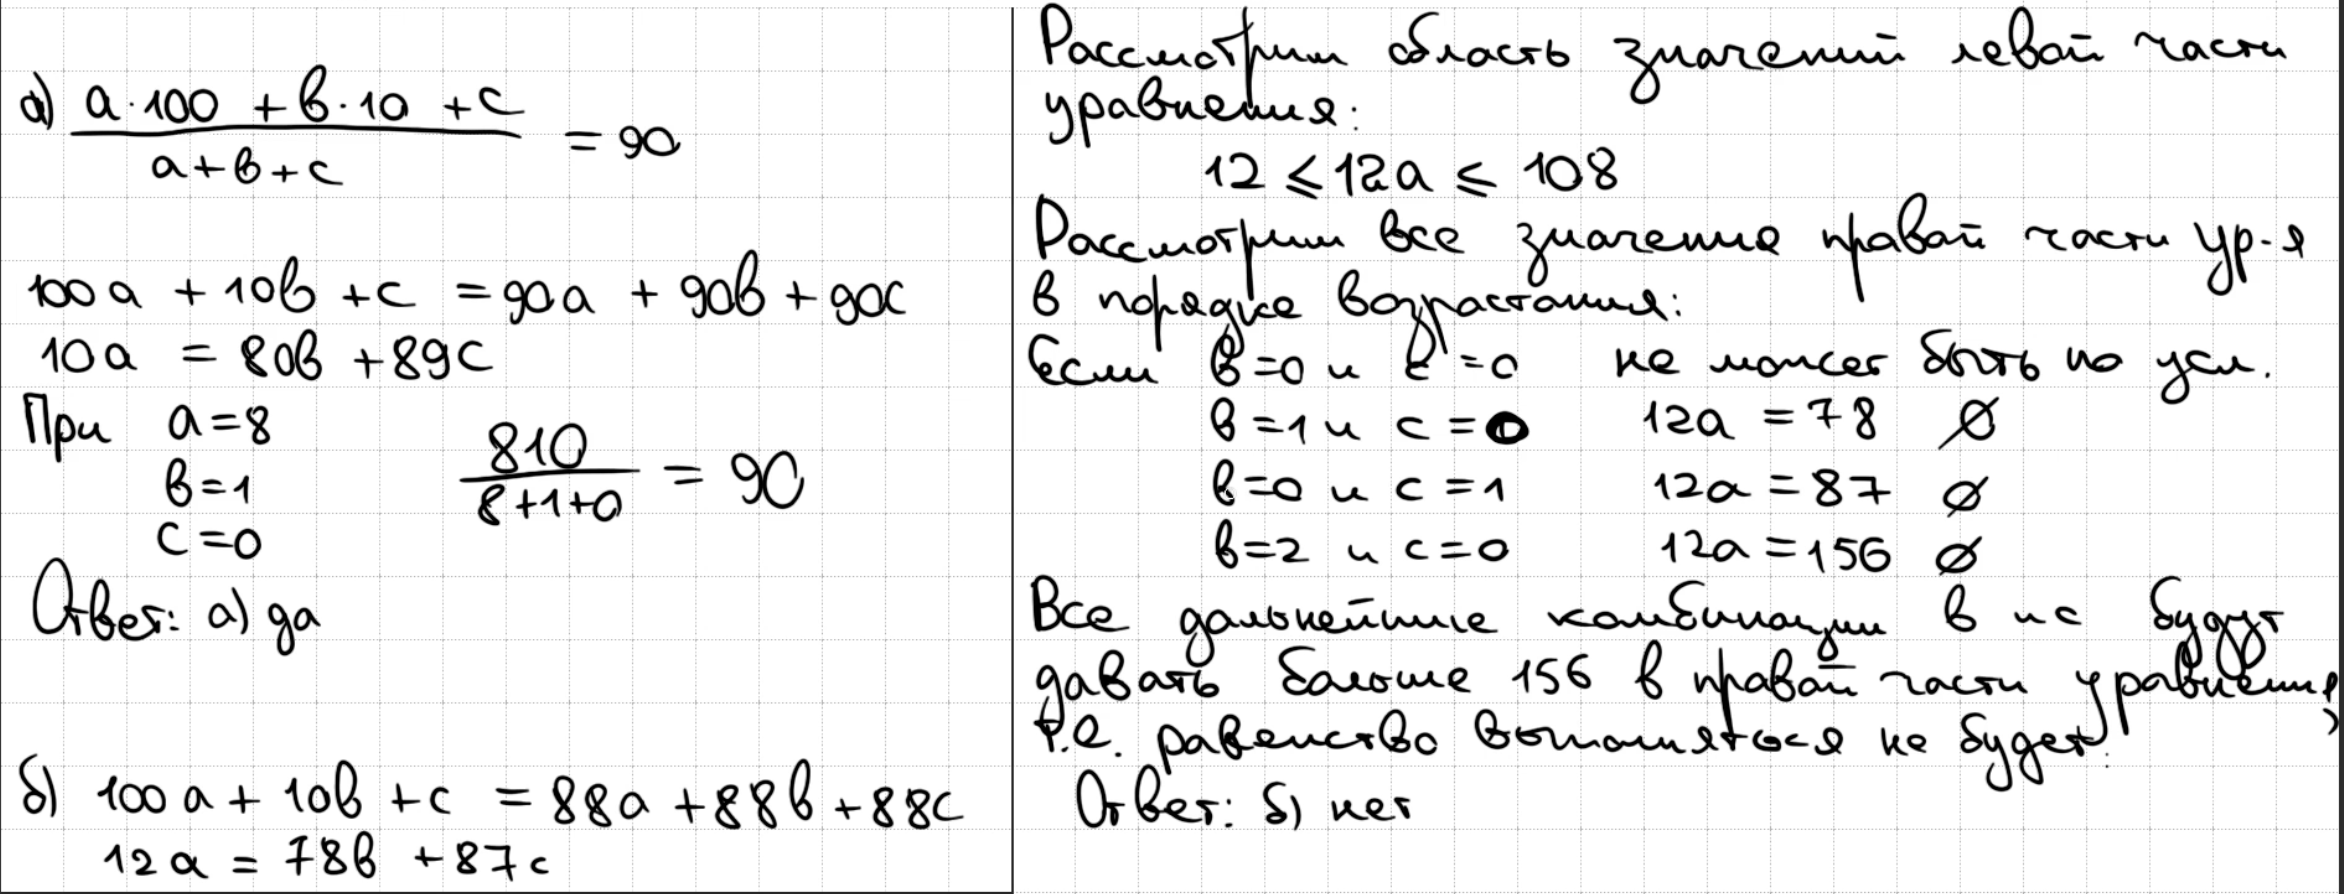 а) a·100 + b·10 + c / a+b+c = 90
100a + 10b + c = 90a + 90b + 90c
10a = 80b + 89c
При a=8
b=1
c=0
810 / 8+1+0 = 90
Ответ: а) да
б) 100a + 10b + c = 88a + 88b + 88c
12a = 78b + 87c
Рассмотрим область значений левой части
уравнения:
12 ⩽ 12a ⩽ 108
Рассмотрим все значения правой части ур-я
в порядке возрастания:
Если b=0 и c=0 не может быть по усл.
b=1 и c=0 12a = 78 ∅
b=0 и c=1 12a = 87 ∅
b=2 и c=0 12a = 156 ∅
Все дальнейшие комбинации b и c будут
давать больше 156 в правой части уравнения,
т.е. равенство выполняться не будет.
Ответ: б) нет